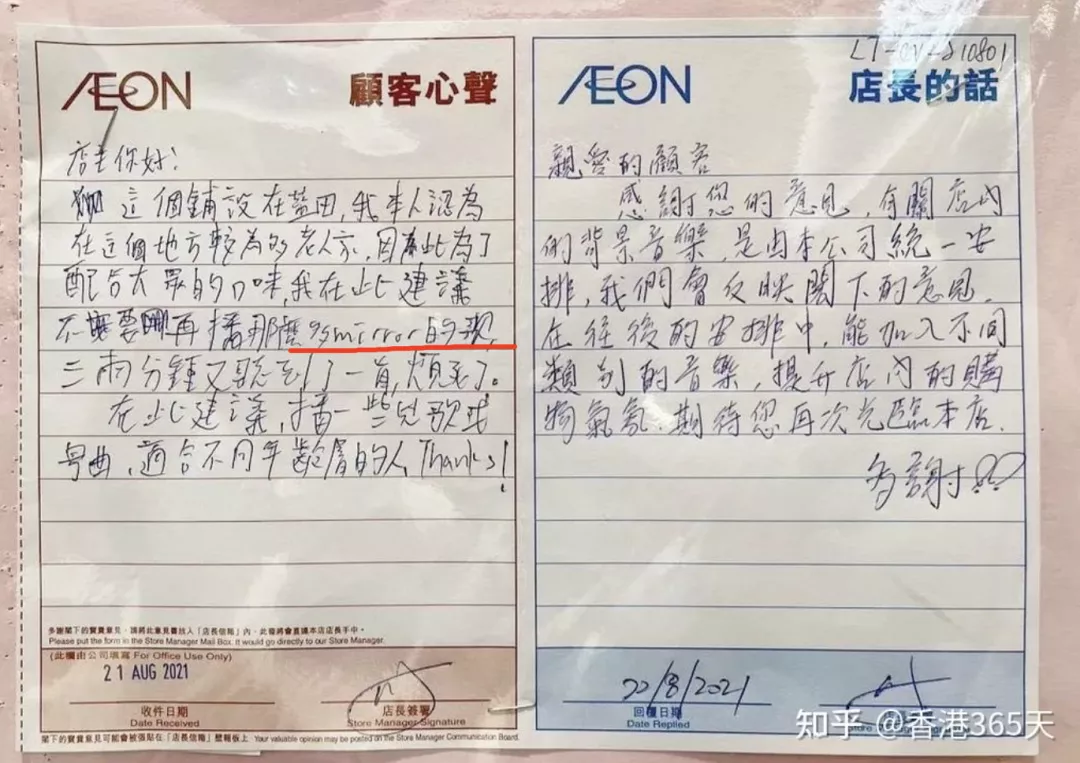 AEON 顧客心聲
店主你好:
這個鋪設在藍田,我本人認為
在這個地方較為多老人家,因為此為了
配合大眾的口味,我在此建議
不要再播那 mirror的歌,
三兩分鐘又聽到了一首,煩死了。
在此建議,播一些兒歌或
粵曲,適合不同年齡層的人 Thanks!
多謝閣下的寶貴意見,請將此意見書放入「店長信箱」內,此箱將會直達本店店長手中。
Please put the form in the Store Manager Mail Box. It would go directly to our Store Manager.
(此欄由公司填寫 For Office Use Only)
21 AUG 2021
收件日期 店長簽署
Date Received Store Manager Signature
閣下的寶貴意見可能會被張貼在「店長信箱」壁報板上 Your valuable opinion may be posted on the Store Manager Communication Board.
AEON 店長的話
親愛的顧客
感謝您的意見,有關店內
的背景音樂,是由本公司統一安
排,我們會反映閣下的意見.
在往後的安排中,能加入不同
類別的音樂,提升店內的購
物氣氛.期待您再次光臨本店.
多謝
22/8/2021
回覆日期
Date Replied
知乎 @香港365天